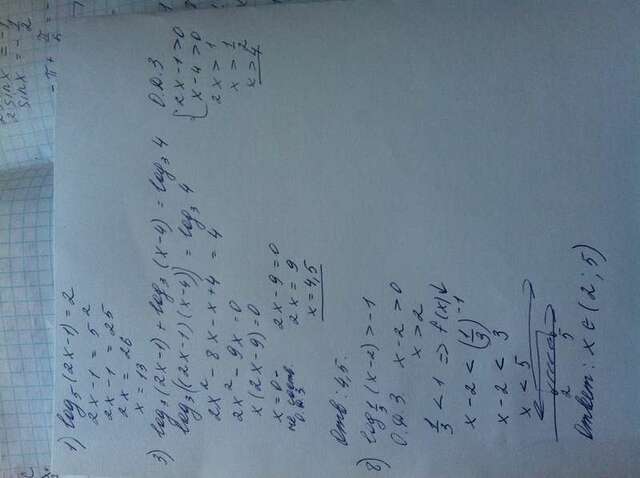 2 sin x = -1
sin x = - 1/2
1) log₅(2x-1) = 2
2x-1 = 5²
2x-1 = 25
2x = 26
x = 13
3) log₃(2x-1) + log₃(x-4) = log₃4
log₃((2x-1)(x-4)) = log₃4
2x² - 8x - x + 4 = 4
2x² - 9x = 0
x(2x-9) = 0
x = 0 -
не соотв. О.Д.З
2x-9 = 0
2x = 9
x = 4,5
О.Д.З
{ 2x-1>0
x-4>0
2x > 1
x > 1/2
x > 4
Отв: 4,5.
log 1/3 (x-2) > -1
О.Д.З x-2 > 0
x > 2
1/3 < 1 => f(x)↓
x-2 < (1/3)⁻¹
x-2 < 3
x < 5
2 5
Ответ: x ∈ (2; 5)